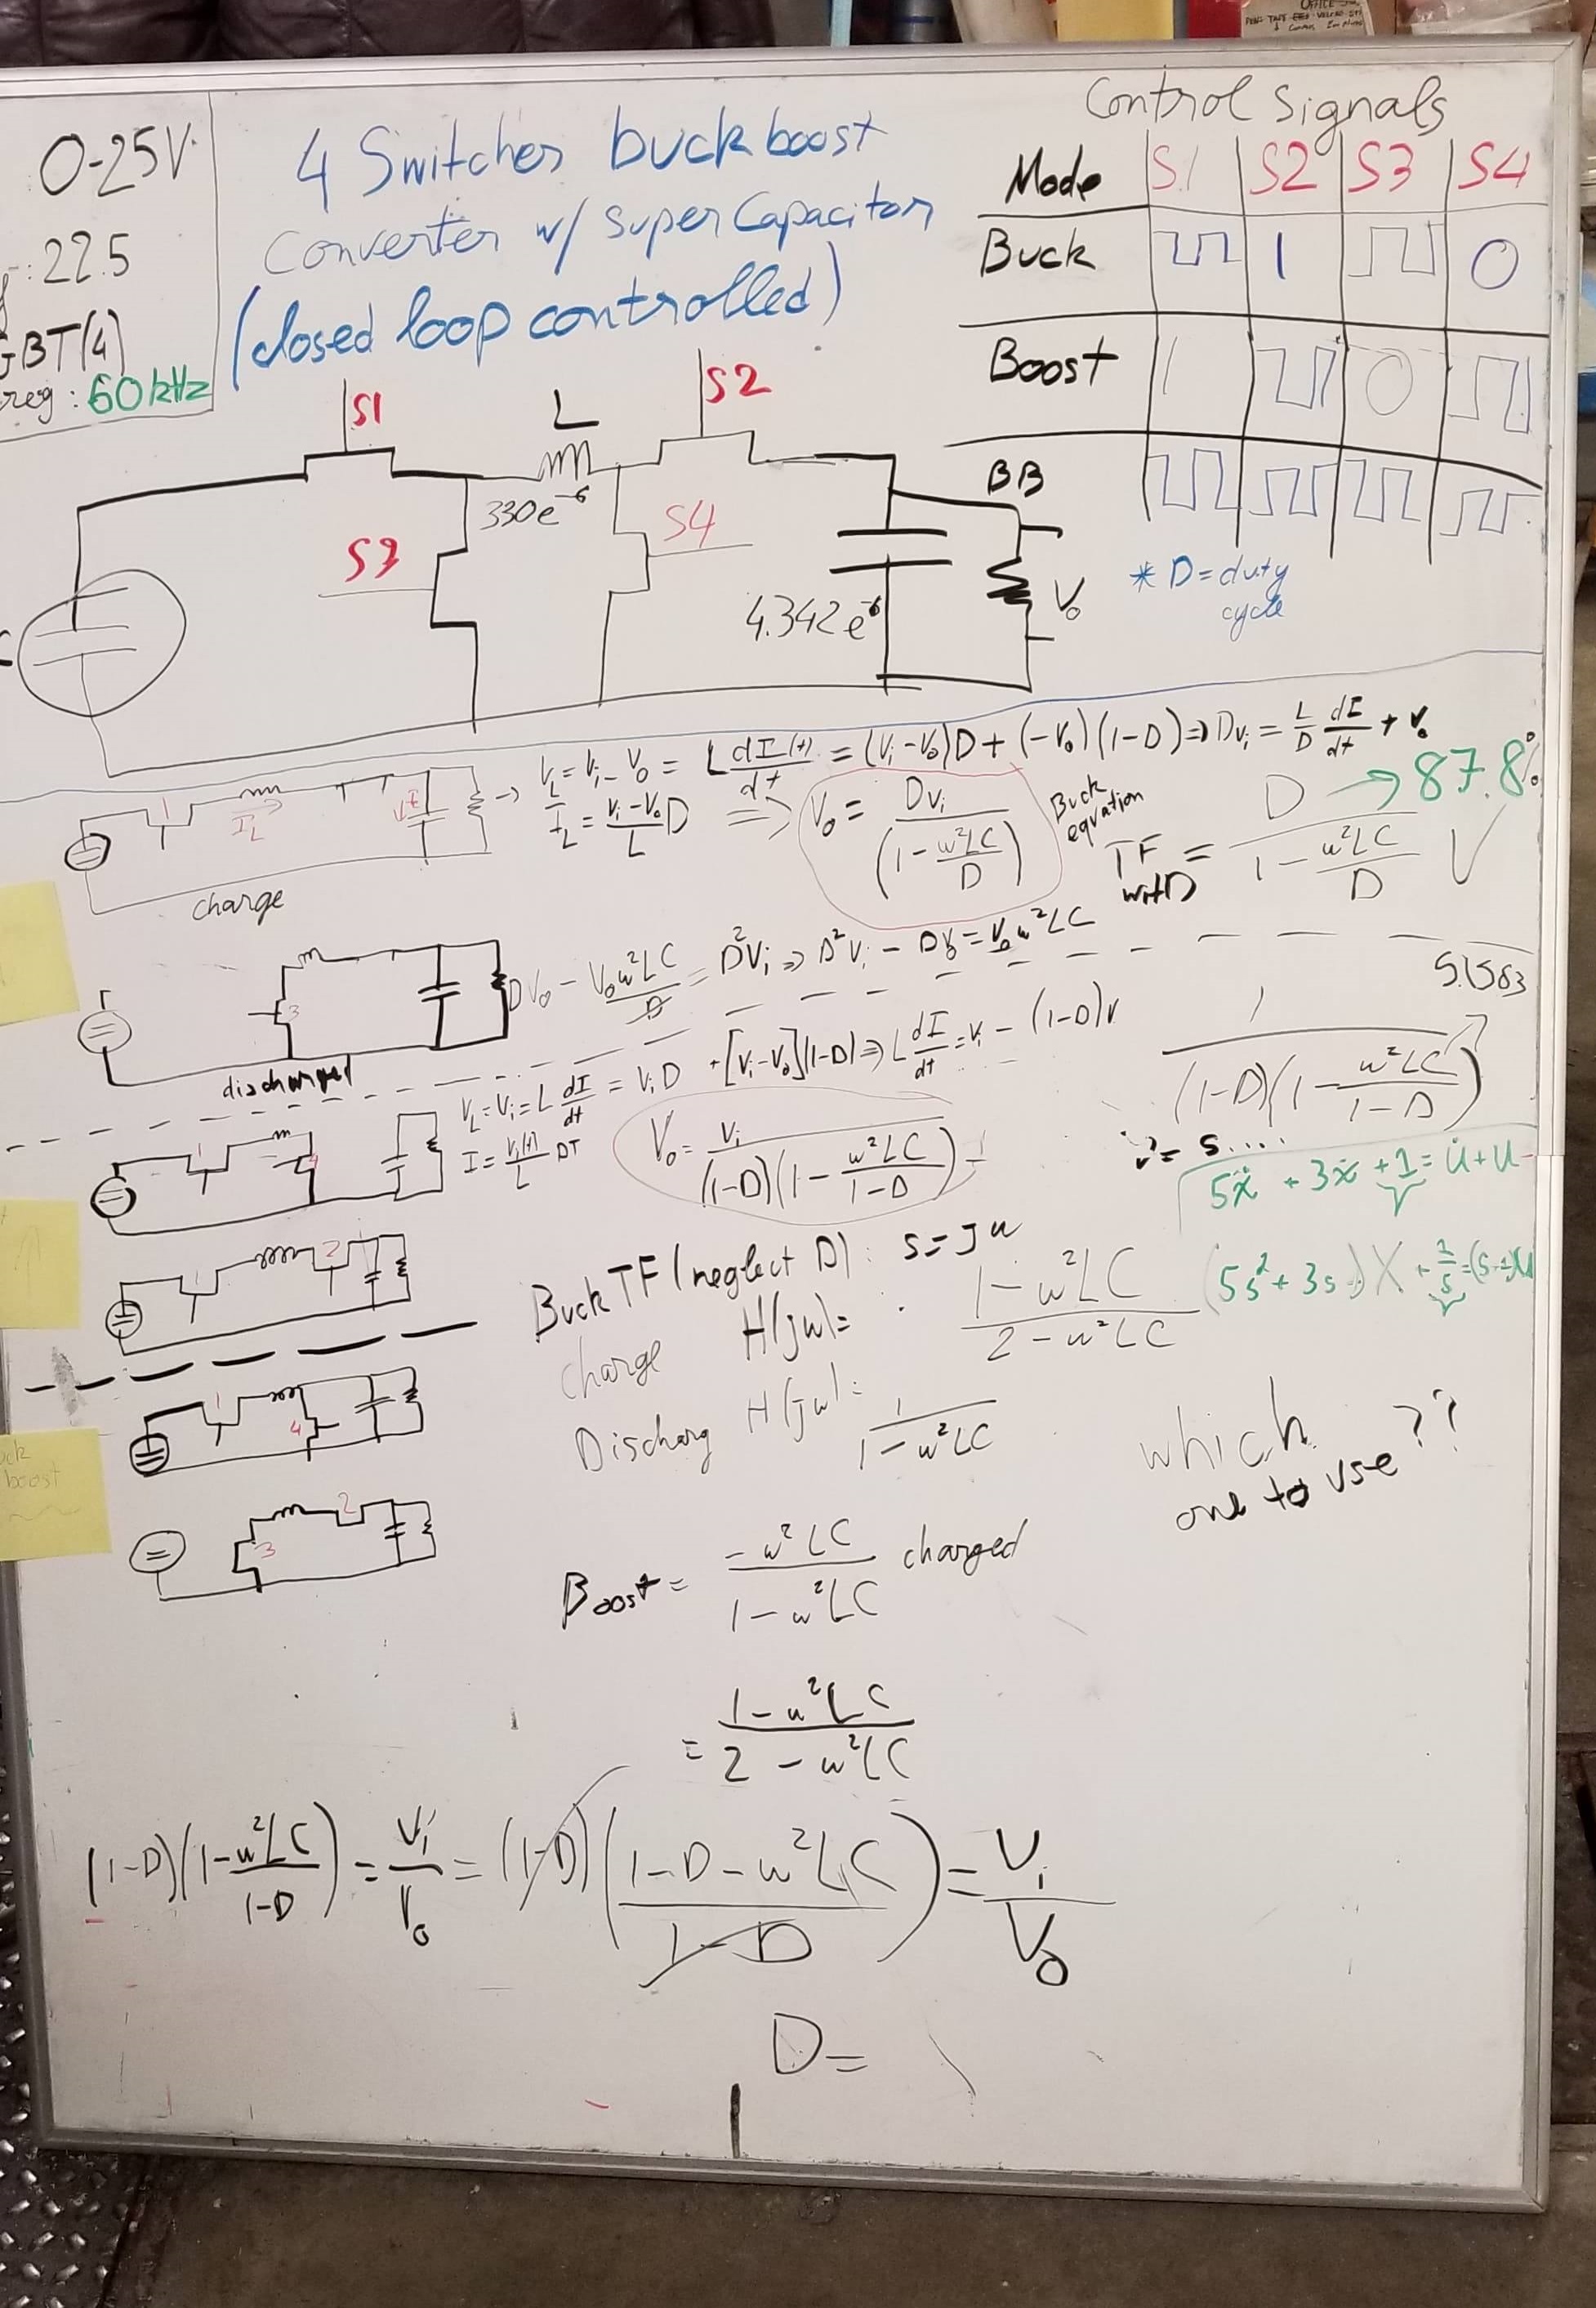 OFFICE
0-25V
: 22.5
GBT(4)
req : 60 kHz
4 Switches buckboost
Converter w/ super Capacitor
(closed loop controlled)
Control Signals
Mode S1 S2 S3 S4
Buck 1 0
Boost 1 0
BB
* D = duty
cycle
S1
L
S2
330e⁻⁶
S3
S4
4.342e⁻⁶
V₀
V_L = V_i - V₀ = L dI(t)/dt = (V_i - V₀)D + (-V₀)(1-D) ⇒ DV_i = L/D dI/dt + V₀
I_L = (V_i - V₀)/L D ⇒ V₀ = DV_i / (1 - w²LC/D)
Buck
equation
TF = D / (1 - w²LC/D) → 87.8%
I_L
1
charge
DV₀ - V₀w²LC/D = D²V_i ⇒ D²V_i - DV₀ = V₀w²LC
3
discharged
V_L = V_i = L dI/dt = V_i D + [V_i - V₀](1-D) ⇒ L dI/dt = V_i - (1-D)V
I = V_i(t)/L DT
V₀ = V_i / ((1-D)(1 - w²LC/(1-D)))
1 / ((1-D)(1 - w²LC/(1-D)))
= s....
5ẍ + 3ẋ + 1 = u̇ + u
Buck TF (neglect D): s = jw
charge H(jw) = (1 - w²LC) / (2 - w²LC)
(5s² + 3s) X + 1/s
Discharg H(jw) = 1 / (1 - w²LC)
which
one to use ??
1
2
1
4
2
3
Boost = -w²LC / (1 - w²LC) charged
= (1 - w²LC) / (2 - w²LC)
(1-D)(1 - w²LC/(1-D)) = V_i/V₀ = (1-D)((1-D-w²LC)/(1-D)) = V_i/V₀
D =
boost